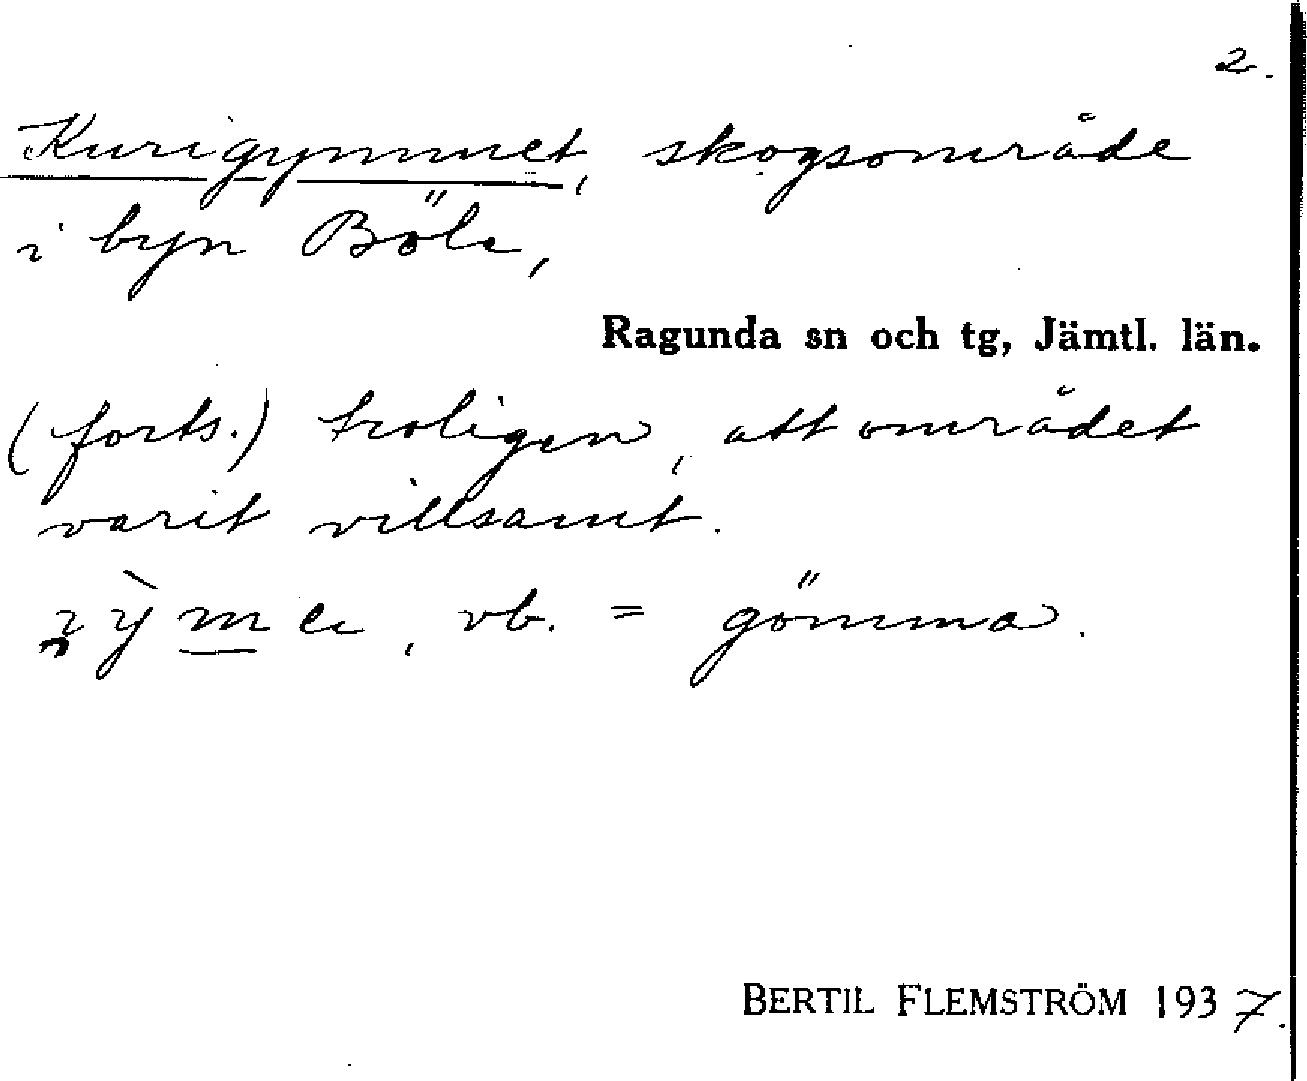 2.
Kurigymmet, skogsområde
i byn Böle,
Ragunda sn och tg, Jämtl. län.
(forts.) troligen, att området
varit villsamt.
vb. = gömma.
BERTIL FLEMSTRÖM 1937.